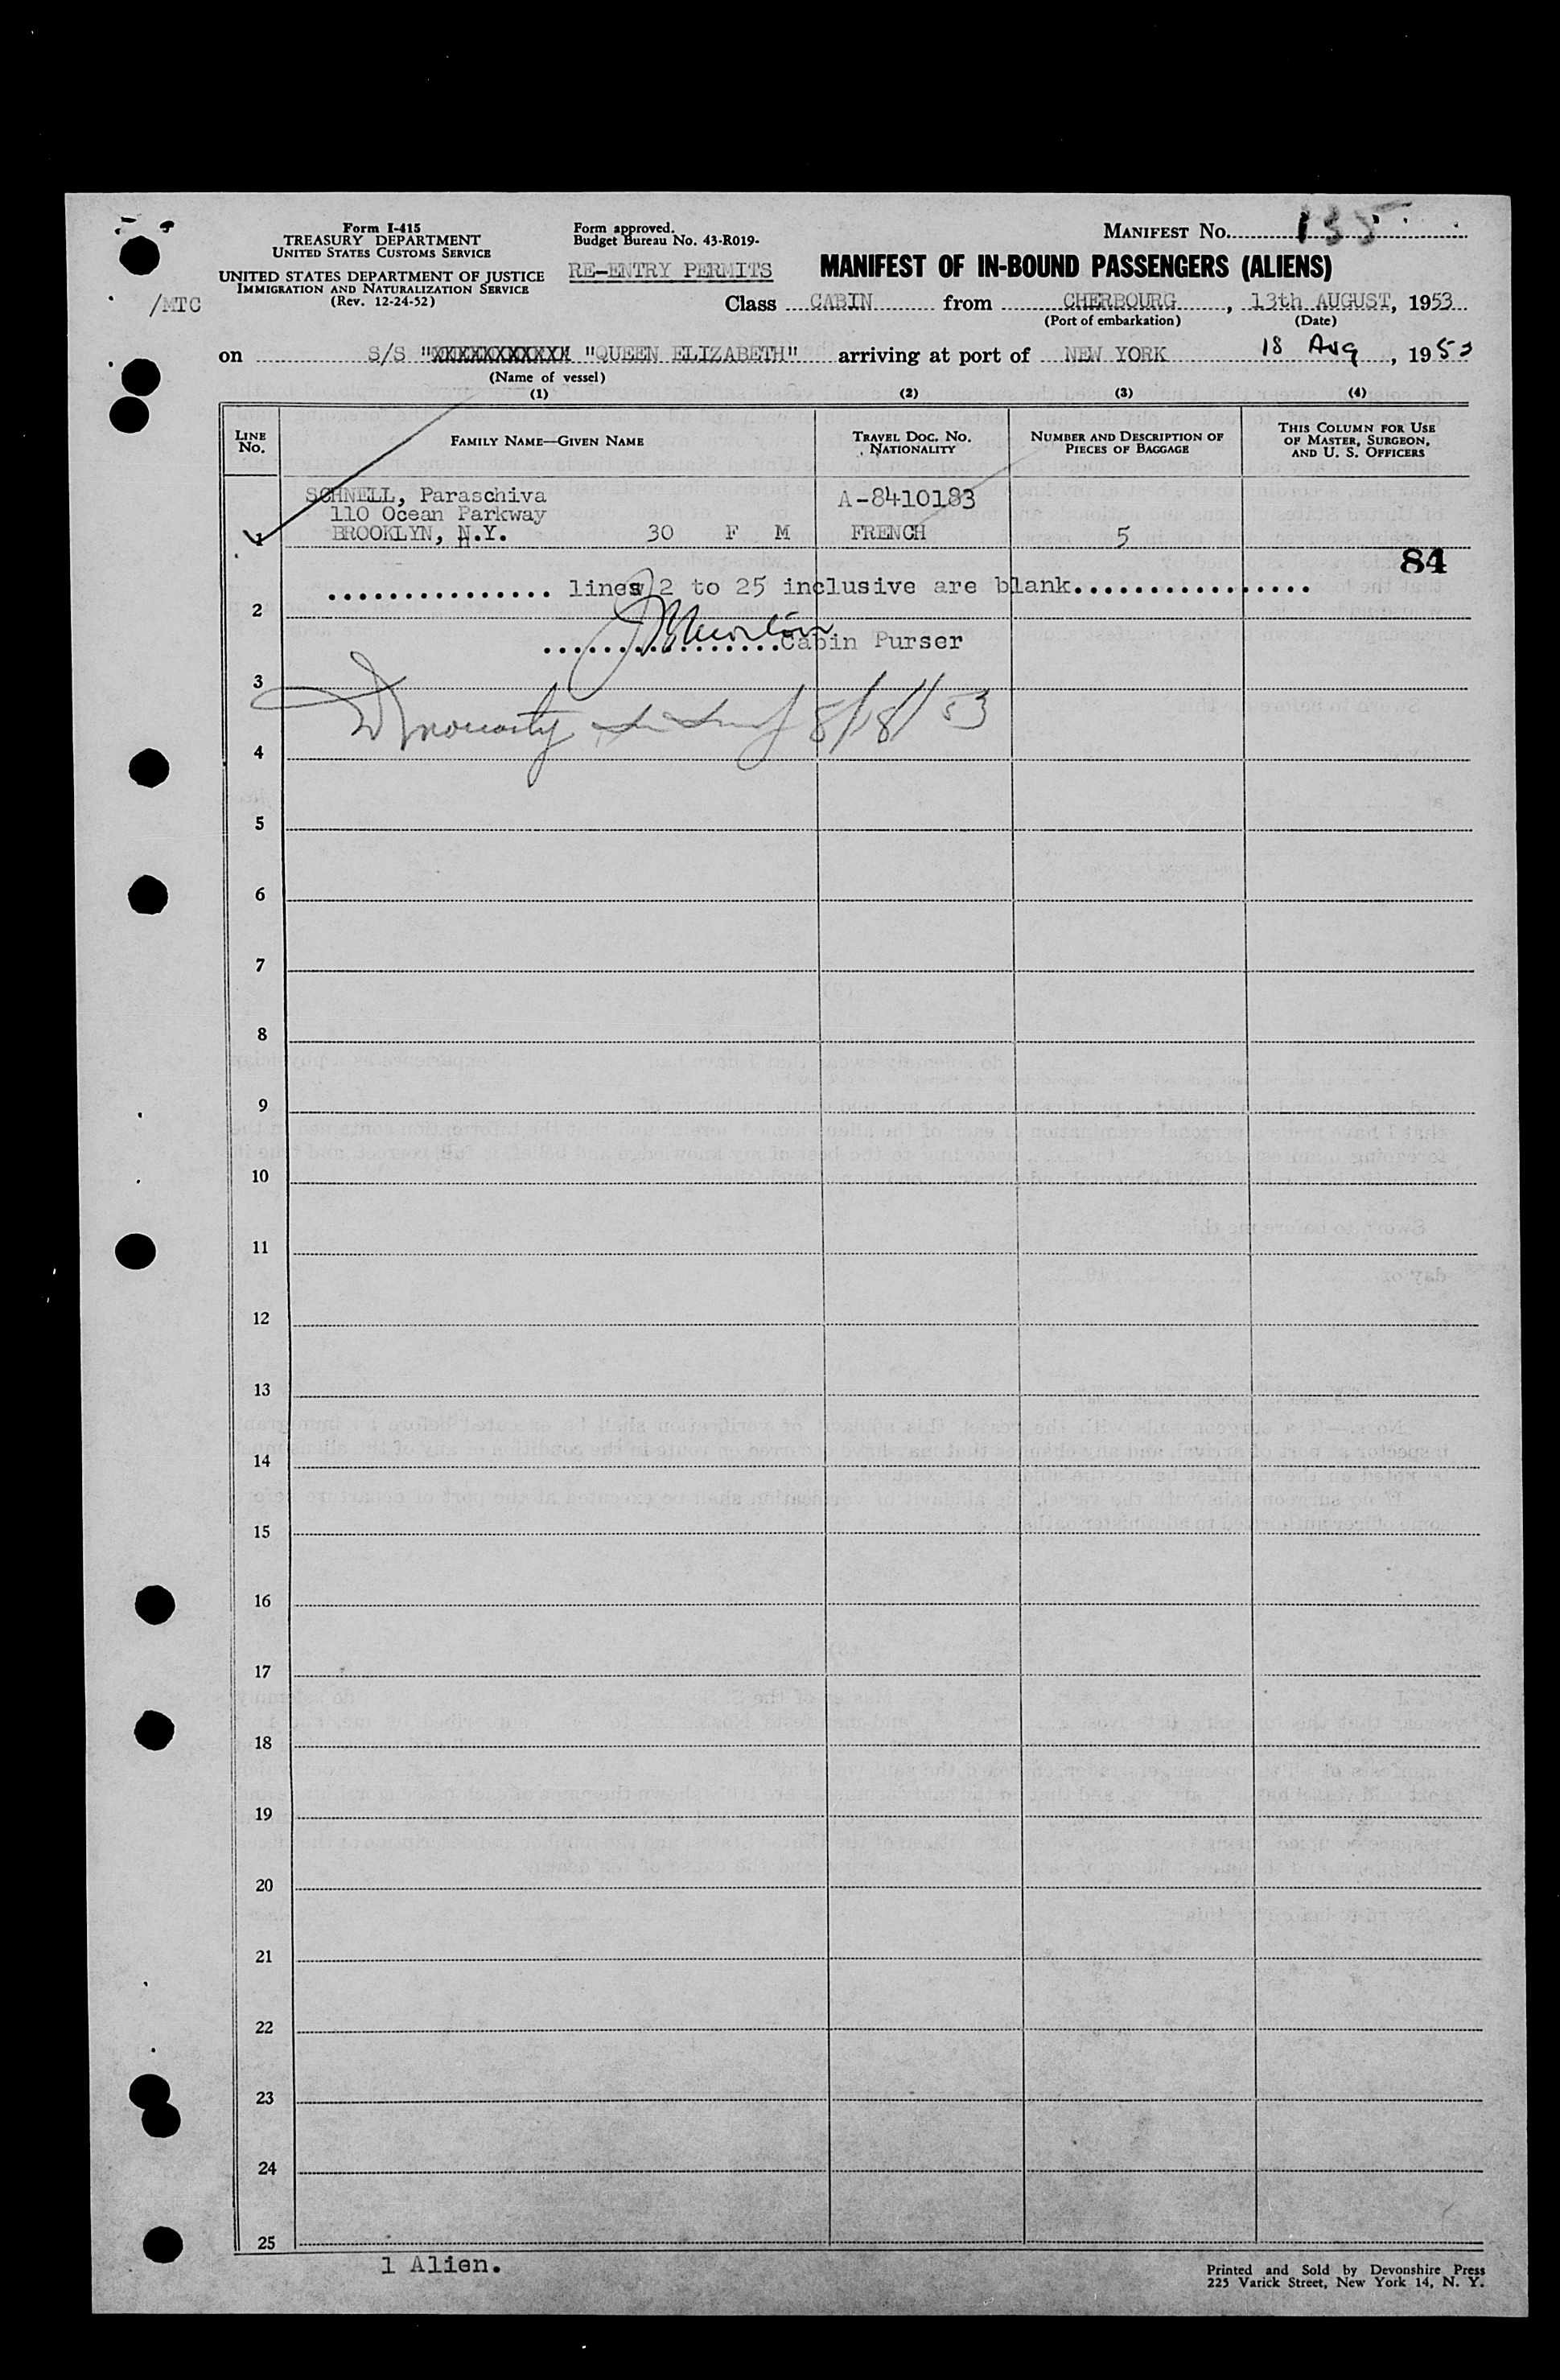 Form I-415
TREASURY DEPARTMENT
UNITED STATES CUSTOMS SERVICE
UNITED STATES DEPARTMENT OF JUSTICE
IMMIGRATION AND NATURALIZATION SERVICE
(Rev. 12-24-52)
/MTC
Form approved.
Budget Bureau No. 43-R019-
RE-ENTRY PERMITS
MANIFEST No. 135
MANIFEST OF IN-BOUND PASSENGERS (ALIENS)
Class CABIN from CHERBOURG, 13th AUGUST, 1953
(Port of embarkation) (Date)
on S/S "XXXXXXXXXXX "QUEEN ELIZABETH" arriving at port of NEW YORK 18 Aug, 1953
(Name of vessel)
(1) (2) (3) (4)
LINE No. FAMILY NAME—GIVEN NAME TRAVEL DOC. No. NATIONALITY NUMBER AND DESCRIPTION OF PIECES OF BAGGAGE THIS COLUMN FOR USE OF MASTER, SURGEON, AND U. S. OFFICERS
SCHNELL, Paraschiva A-8410183
110 Ocean Parkway
1 BROOKLYN, N.Y. 30 F M FRENCH 5
84
............... lines 2 to 25 inclusive are blank................
2
................Cabin Purser
3
8/18/53
4
5
6
7
8
9
10
11
12
13
14
15
16
17
18
19
20
21
22
23
24
25
1 Alien.
Printed and Sold by Devonshire Press
225 Varick Street, New York 14, N. Y.